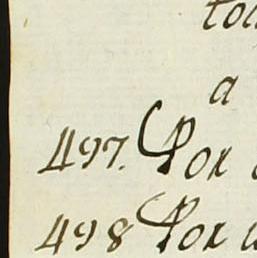 tou
a
497. Por
498 Por